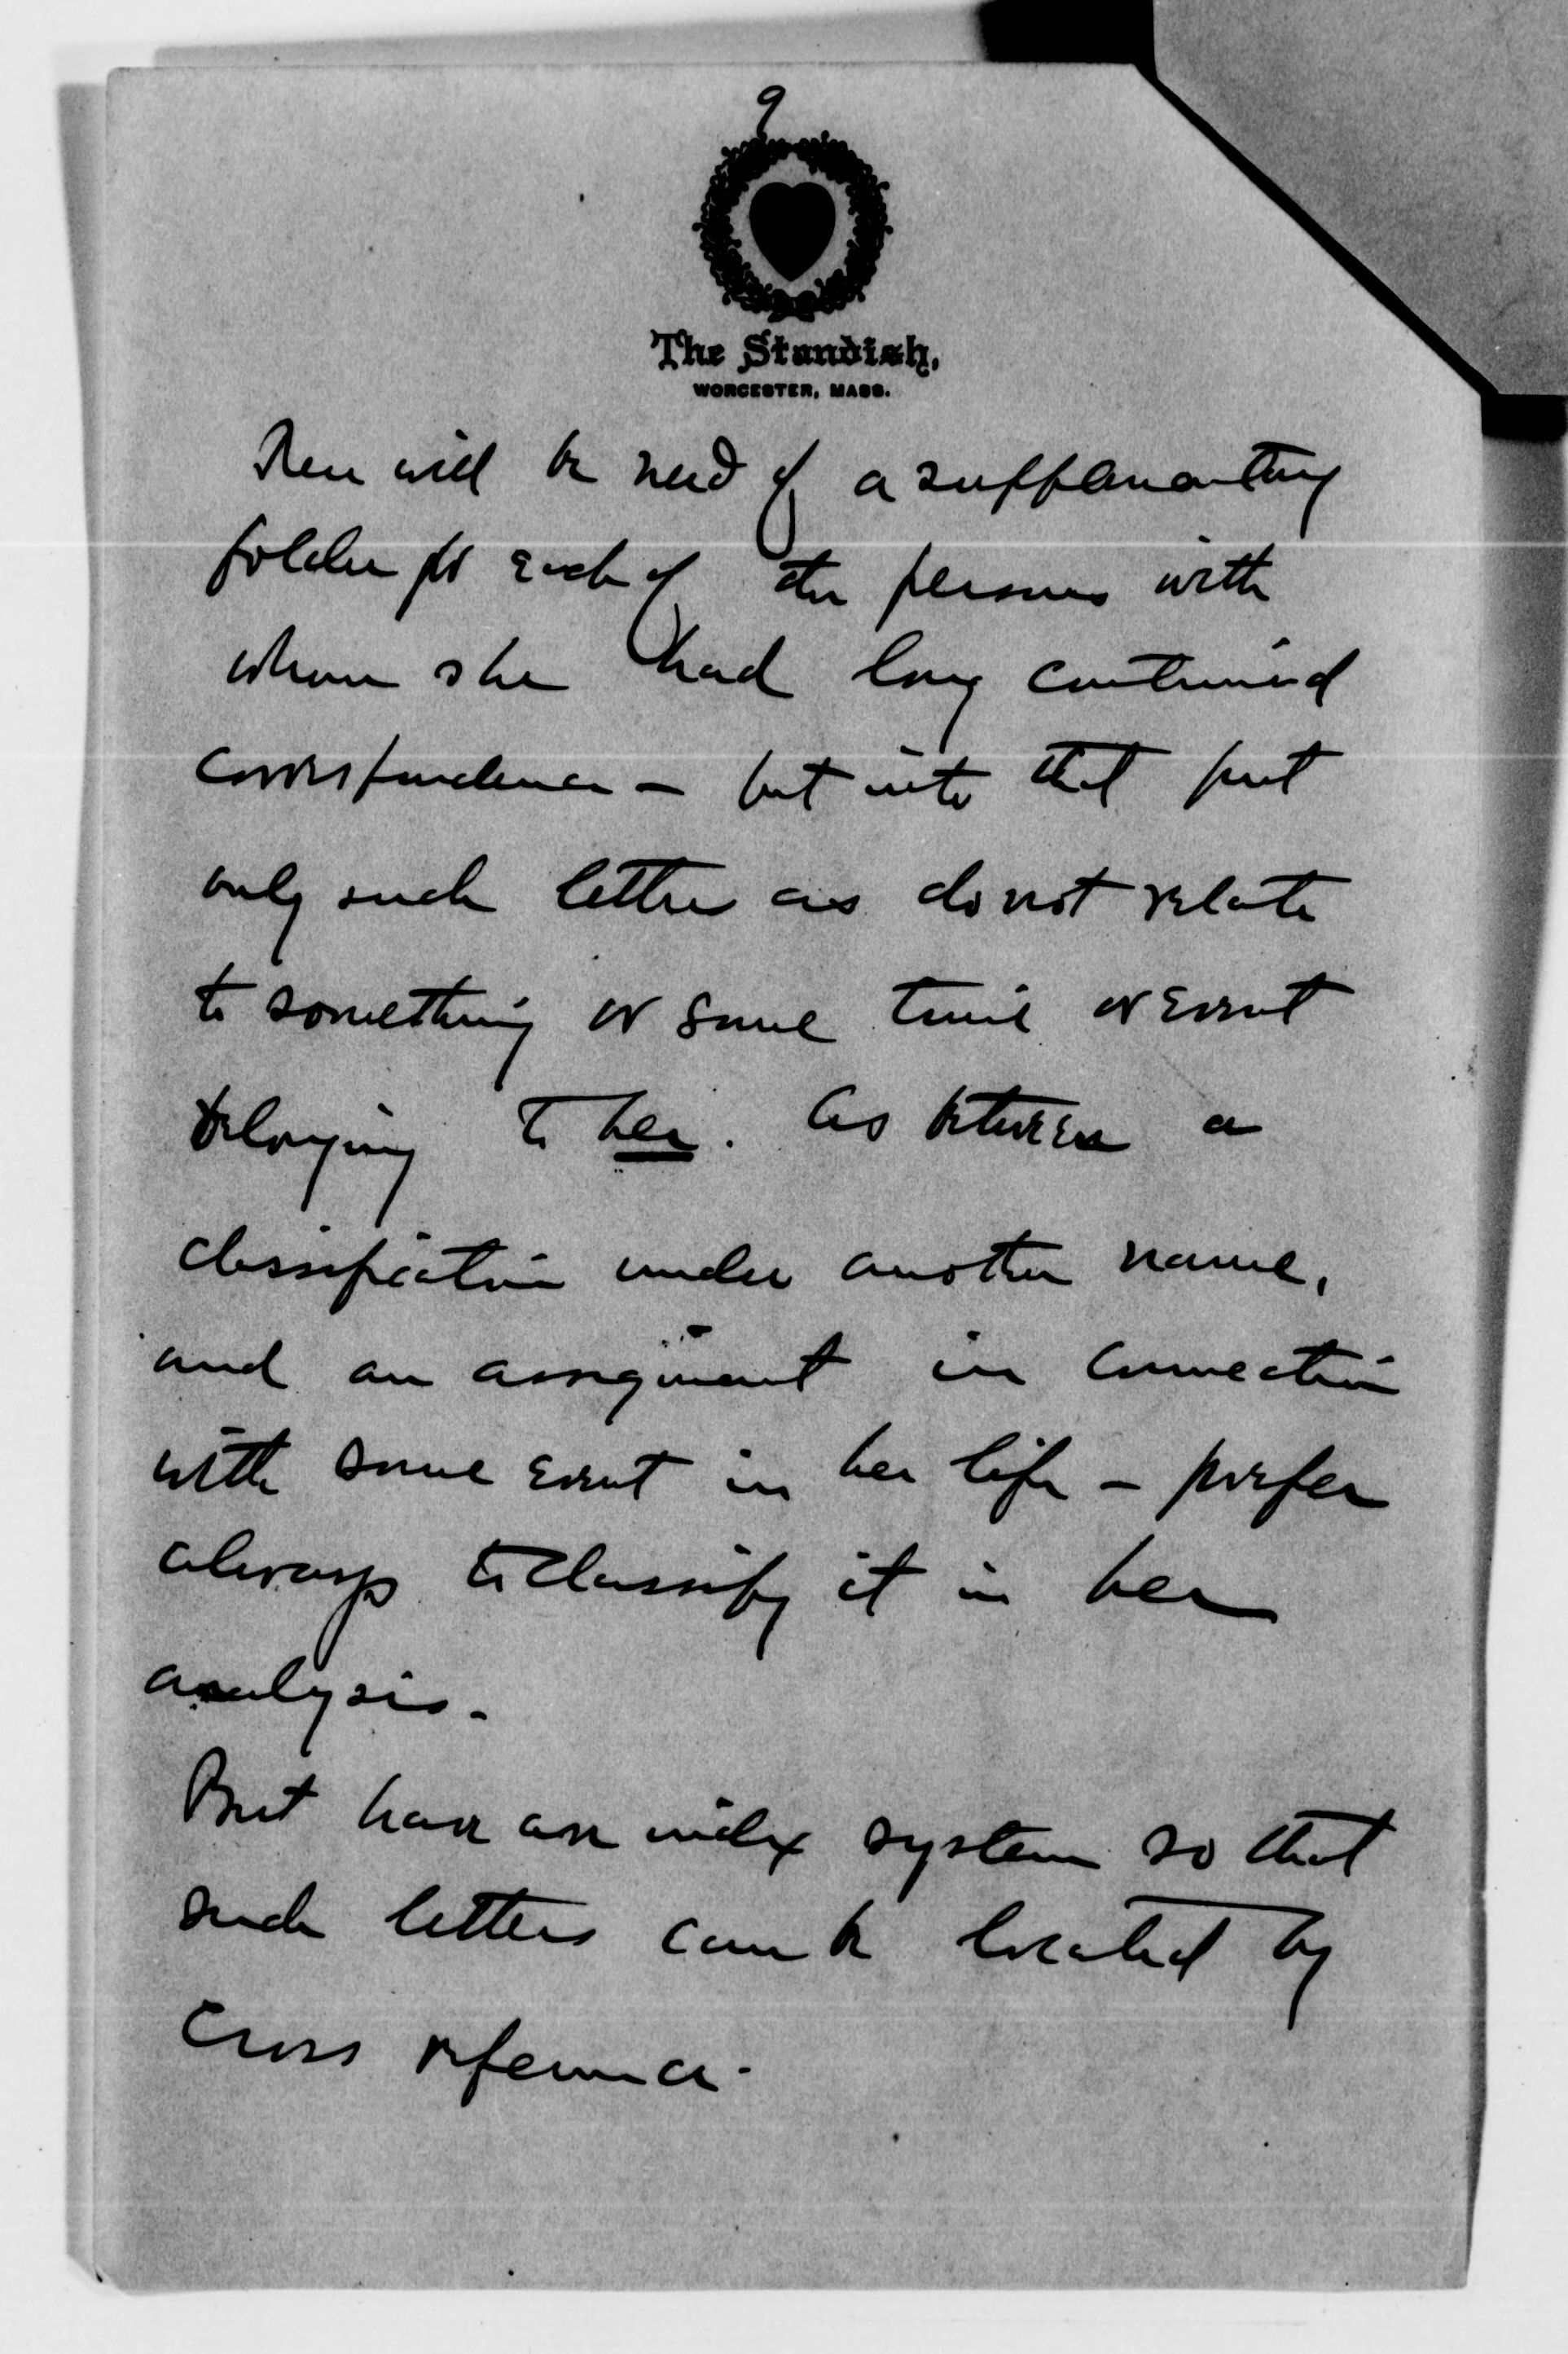 9
The Standish,
WORCESTER, MASS.
There will be need of a supplementary
folder for each of the persons with
whom she had long continued
correspondence — but into that put
only such letters as do not relate
to something or some time or event
belonging to her. As between a
classification under another name,
and an assignment in connection
with some event in her life — prefer
always to classify it in her
analysis.
But have an index system so that
such letters can be located by
cross reference.